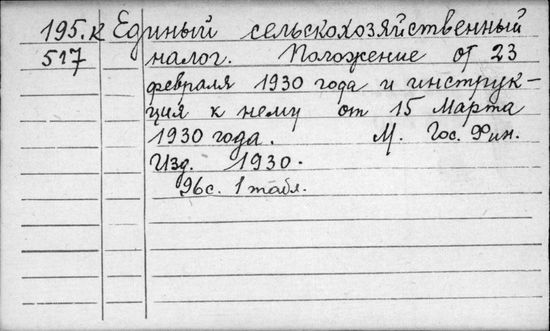 195.к Единый сельскохозяйственный
517 налог. Положение от 23
февраля 1930 года и инструк-
ция к нему от 15 Марта
1930 года. М. Гос. Фин.
Изд. 1930.
96с. 1 табл.